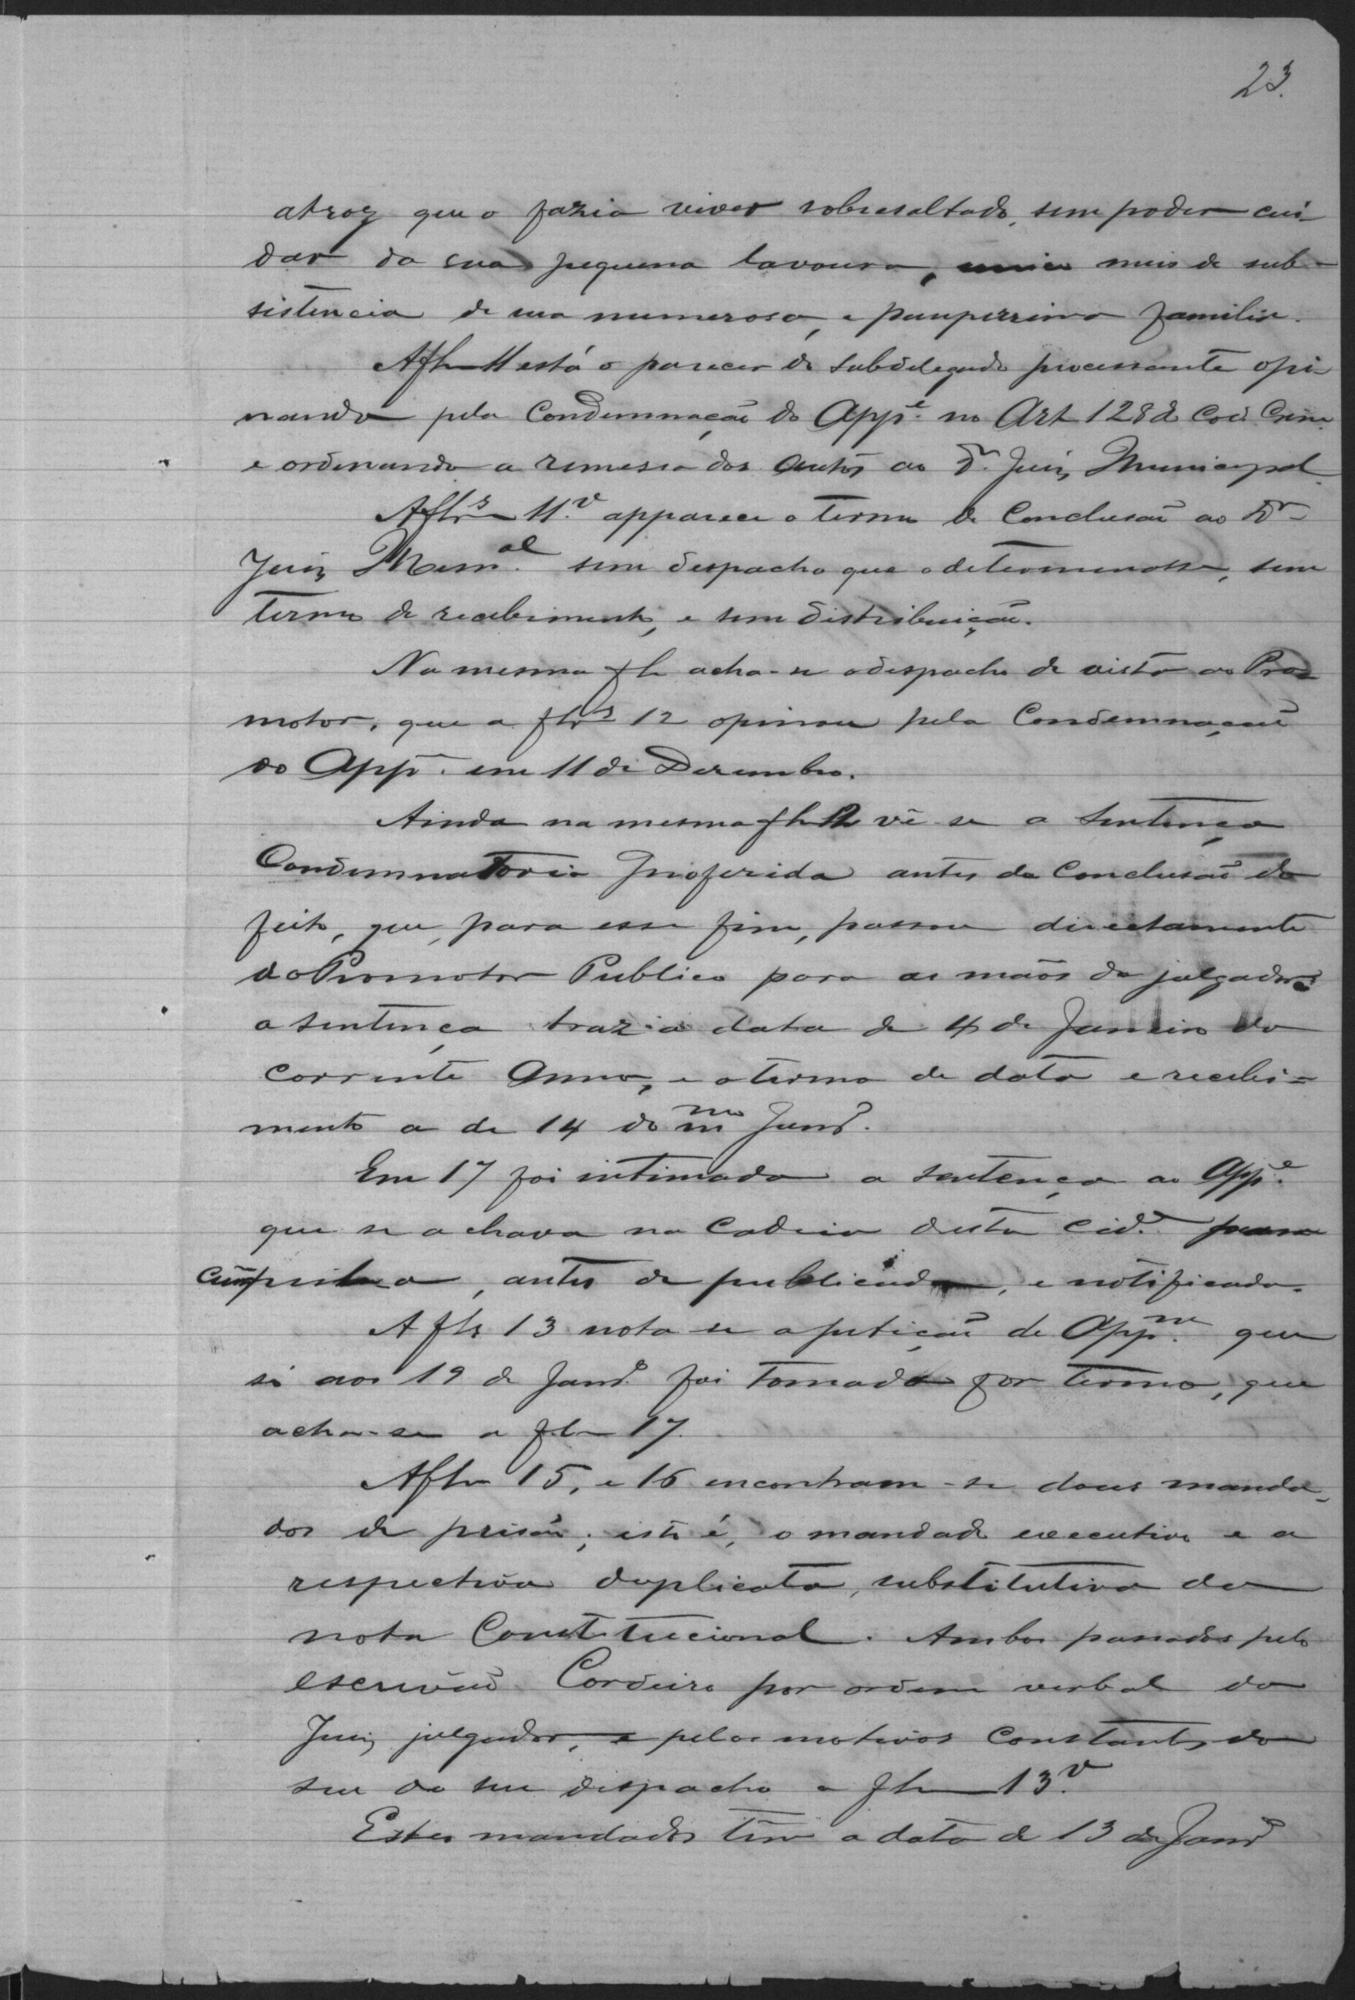 23.
atroz que o fazia viver sobresaltado, sem poder cui-
dar da sua pequena lavoura, unico meio de sub-
sistencia de sua numerosa, e pauperrima familia.
A fls 11 está o parecer do Subdelegado processante opi-
nando pela Condemnação do Appe. no Art 128 do Cod. Crim.
e ordenando a remessa dos autos ao Dr. Juiz Municipal.
A fls 11.v apparece o termo de Conclusão ao Dr
Juiz Mun.al sem despacho que o determinasse, sem
termo de recebimento, e sem distribuição.
Na mesma fl acha-se o despacho de vista ao Pro-
motor, que a fls 12 opinou pela Condemnação
do Appe. em 11 de Dezembro.
Ainda na mesma fl 12 vê-se a Sentença
Condemnatoria proferida antes da Conclusão do
feito, que, para esse fim, passou directamente
do Promotor Publico para as mãos do julgador;
a sentença traz a data de 4 de Janeiro do
corrente Anno, e o termo de data e recebi-
mento a de 14 do mmo Janro.
Em 17 foi intimada a sentença ao Appe.
que se achava na Cadeia desta cide. para
cumpril-a, antes de publicada, e notificada.
A fls 13 nota-se a petição de Appm. que
só aos 19 de Janro. foi tomada por termo, que
acha-se a fls 17.
A fls 15, e 16 encontram-se dous manda-
dos de prisão; isto é, o mandado executivo e a
respectiva duplicata, substitutiva da
nota Constitucional. Ambos passados pelo
escrivão Cordeiro por ordem verbal do
Juiz julgador, e pelos motivos Constantes do
seu do seu despacho a fls 13.v
Estes mandados tem a data de 13 de Janro